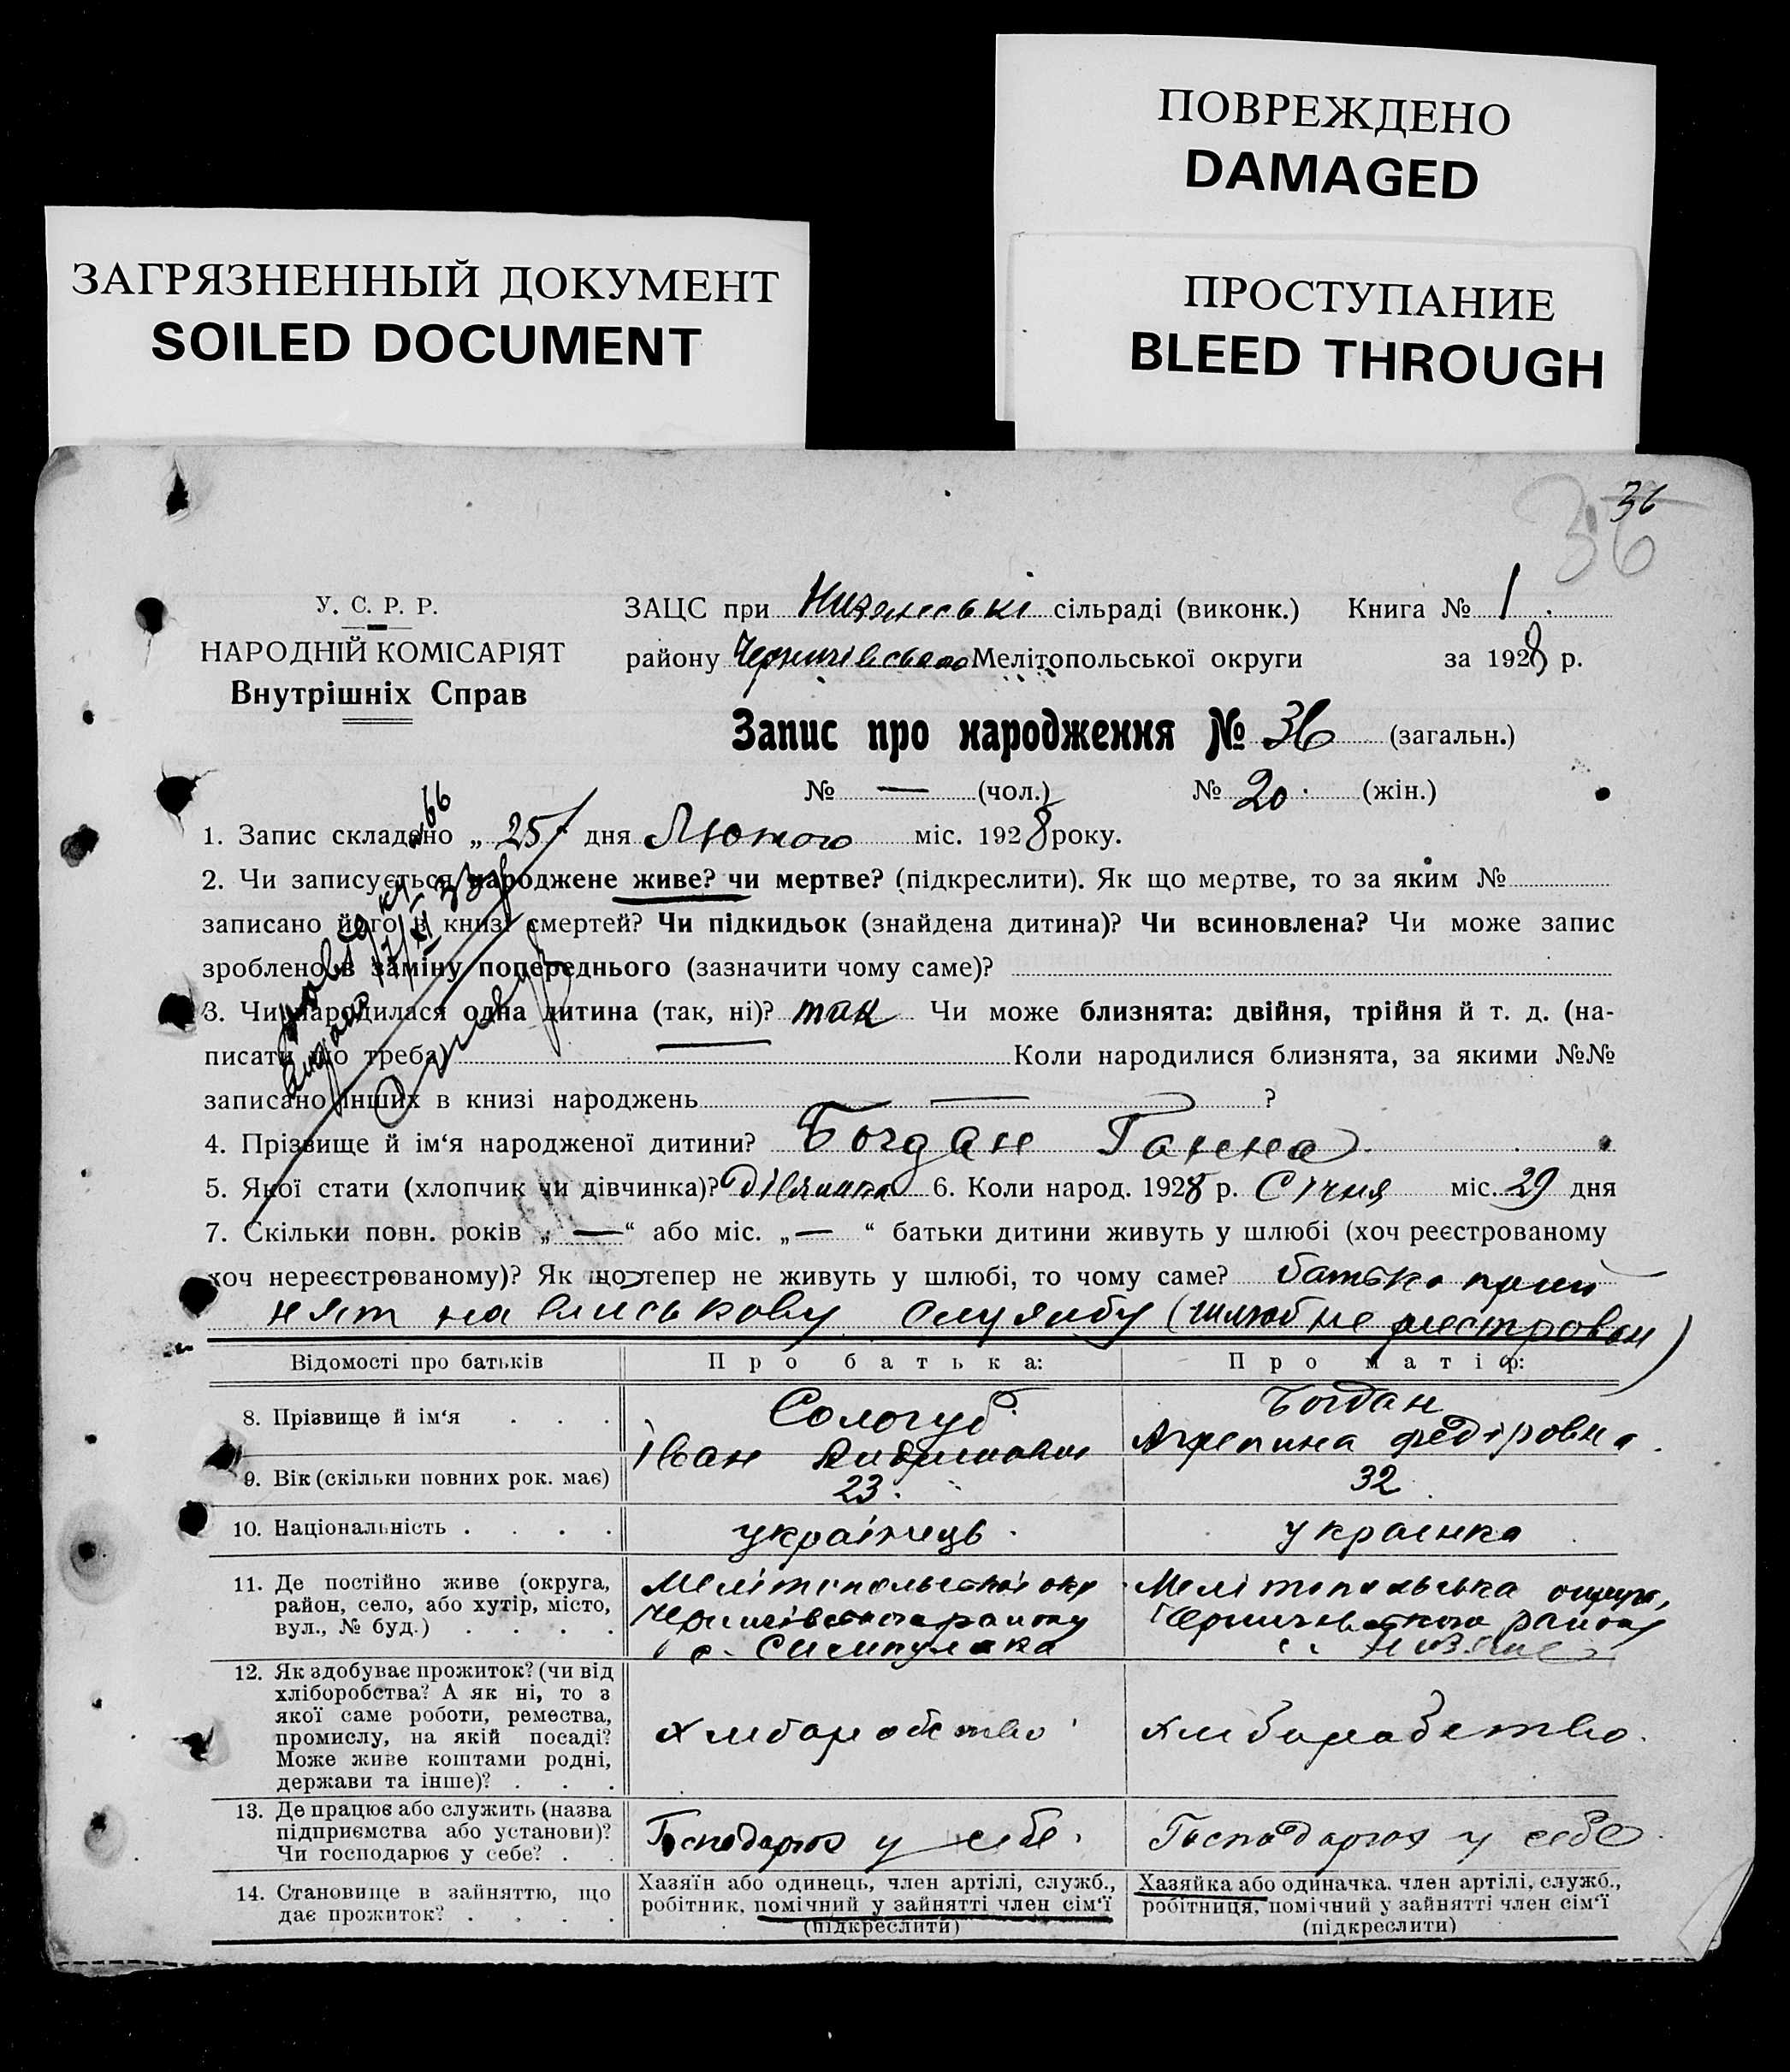 ПОВРЕЖДЕНО
DAMAGED
ЗАГРЯЗНЕННЫЙ ДОКУМЕНТ
SOILED DOCUMENT
ПРОСТУПАНИЕ
BLEED THROUGH
36
36
У. С. Р. Р.
НАРОДНІЙ КОМІСАРІЯТ
Внутрішніх Справ
ЗАЦС при Низянські сільраді (виконк.) Книга № 1
району Чернигівського Мелітопольської округи за 1928 р.
Запис про народження № 36 (загальн.)
№ — (чол.) № 20 (жін.)
1. Запис складено „ 25 дня Лютого міс. 1928 року.
2. Чи записується народжене живе? чи мертве? (підкреслити). Як що мертве, то за яким №
записано його в книзі смертей? Чи підкидьок (знайдена дитина)? Чи всиновлена? Чи може запис
зроблено в заміну попереднього (зазначити чому саме)?
3. Чи народилася одна дитина (так, ні)? так Чи може близнята: двійня, трійня й т. д. (на-
писати що треба) — Коли народилися близнята, за якими №№
записано інших в книзі народжень — ?
4. Прізвище й ім‘я народженої дитини? Богдан Ганна
5. Якої стати (хлопчик чи дівчинка)? Дівчинка 6. Коли народ. 1928 р. Січня міс. 29 дня
7. Скільки повн. років „ — “ або міс. „ — “ батьки дитини живуть у шлюбі (хоч реєстрованому
хоч нереєстрованому)? Як що тепер не живуть у шлюбі, то чому саме? батько прий
нят на військову службу (шлюб не реєстрован)
Відомості про батьків Про батька: Про матір:
8. Прізвище й ім‘я Сологуб Іван Богдан Агрепина Федіровна
9. Вік (скільки повних рок. має) 23. 32
10. Національність українець українка
11. Де постійно живе (округа, район, село, або хутір, місто, вул., № буд.)
Мелітопольської окр Чернигівського району с.
Мелітопольська округи, Чернигівського району
12. Як здобуває прожиток? (чи від хліборобства? А як ні, то з якої саме роботи, ремества, промислу, на якій посаді? Може живе коштами родні, держави та інше)?
хліборобство хліборобство
13. Де працює або служить (назва підприємства або установи)? Чи господарює у себе?
Господарює у себе Господарює у себе
14. Становище в зайняттю, що дає прожиток?
Хазяїн або одинець, член артілі, служб., робітник, помічний у зайнятті член сім‘ї (підкреслити)
Хазяйка або одиначка, член артілі, служб., робітниця, помічний у зайнятті член сім‘ї (підкреслити)